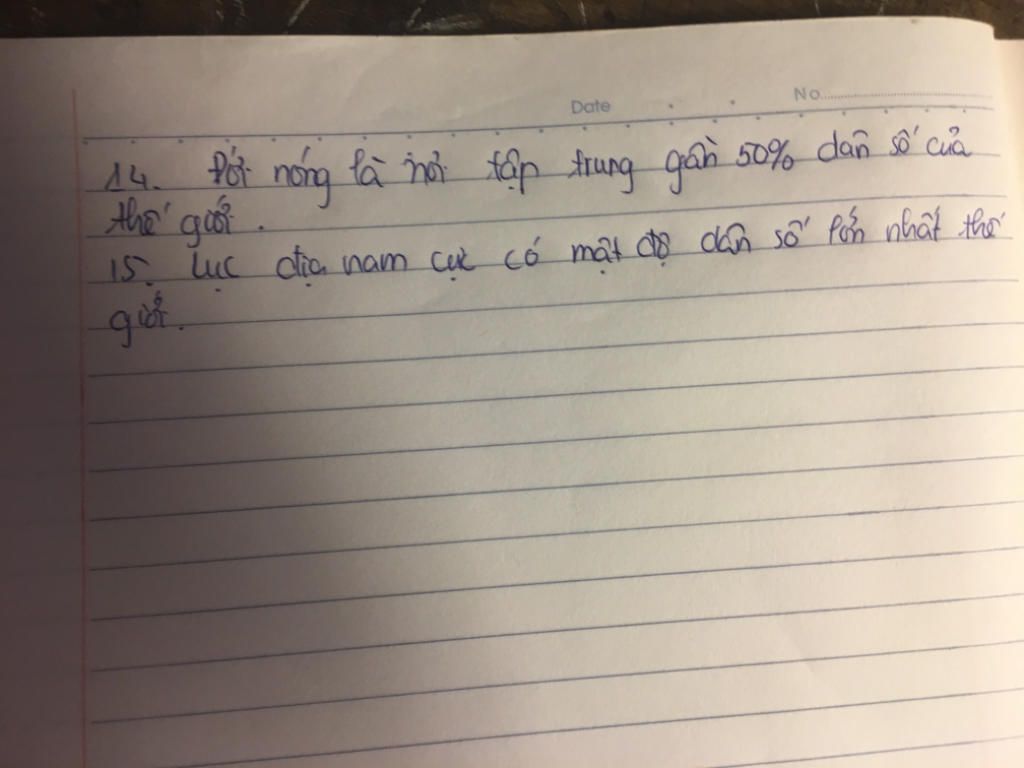 Date No.
14. Đới nóng là nơi tập trung gần 50% dân số của
thế giới.
15. Lục địa nam cực có mật độ dân số lớn nhất thế
giới.